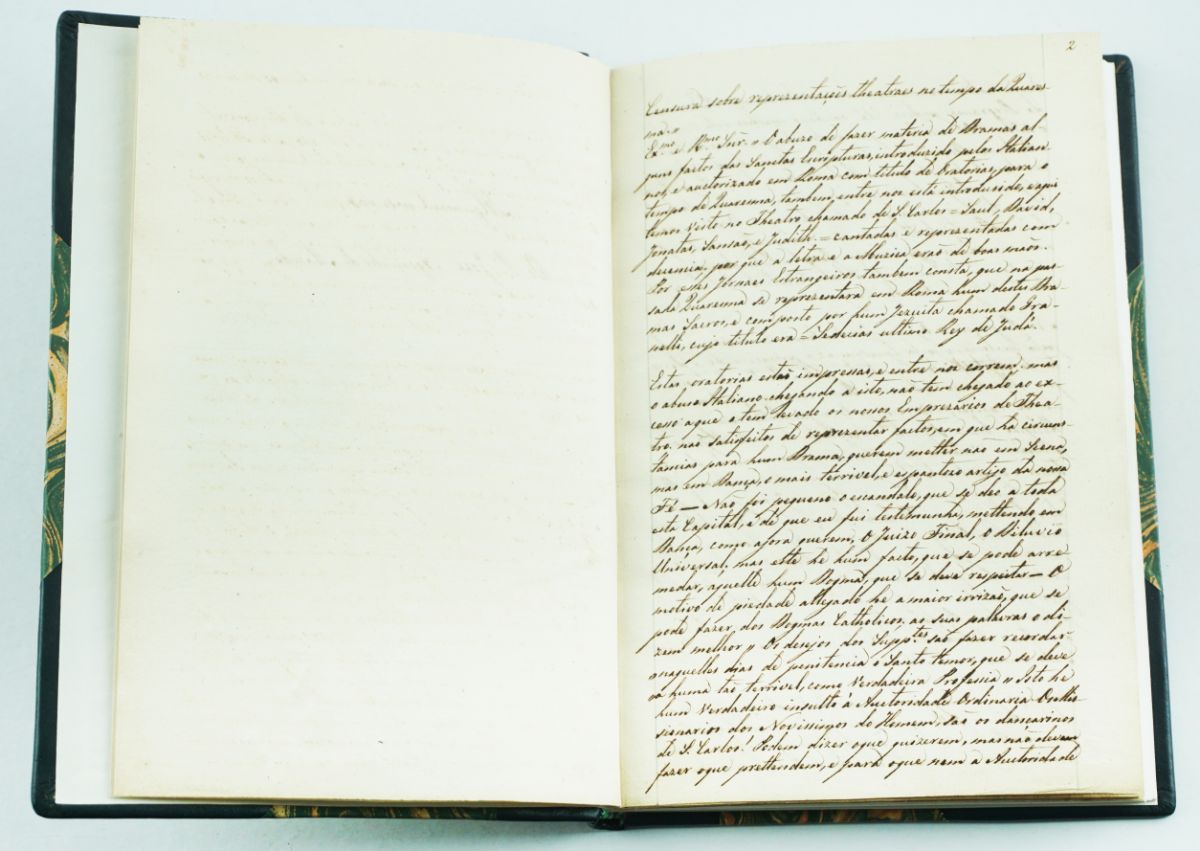 2
Censura sobre reprezentações theatraes no tempo da Quares-
ma. "
Ex.mo e R.mo Snr. " O abuzo de fazer materia de Dramas al-
guns factos das Sanctas Escripturas, introduzido pelos Italian
nos, e auctorizado em Roma com titulo de Oratorias, para o
tempo de Quaresma, tambem entre nos está introduzido, e qui
temos visto no Theatro chamado de S. Carlos = Saul, David,
Jonatas, Sansão, e Judith. = cantadas e reprezentadas com
decencia, por que a letra e a Muzica erão de boas maos.
Por estes Jornaes Estrangeiros tambem consta, que na pas-
sada Quaresma se reprezentara em Roma hum destes Dra-
mas Sacros, e composto por hum Jezuita chamado Gra-
nelli, cujo titulo era = Sedecias ultimo Rey de Judá.
Estas oratorias estão impressas, e entre nos correm. mas
o abuso Italiano chegando a isto, não tem chegado ao ex-
cesso aque o tem levado os nossos Emprezarios de Thea-
tro. não satisfeitos de reprezentar factos, em que há circuns-
tancias para hum Drama, querem metter não em Scena,
mas em Dança, o mais terrivel, e espantozo artigo da nossa
Fé — Não foi pequeno o escandalo, que se deo a toda
esta Capital, e de que eu fui testemunha, mettendo em
Dança, como agora querem, O Juizo Final, O Diluvio
Universal. mas este he hum facto, que se pode arre
medar, aquelle hum Dogma, que se deve respeitar — O
motivo de piedade allegado he a maior irrizão, que se
pode fazer dos Dogmas Catholicos, as suas palavras o di-
zem melhor " Os desejos dos Supp.tes são fazer recordar
naquelles dias de penitencia o Santo temor, que se deve
a huma tão terrivel, como Verdadeira Profesia " Isto he
hum Verdadeiro insulto á Auctoridade Ordinaria Os Mis-
sionarios dos Novissimos do Homem, são os dançarinos
de S. Carlos! Podem dizer oque quizerem, mas não devem
fazer oque prettendem, e para oque nem a Auctoridade